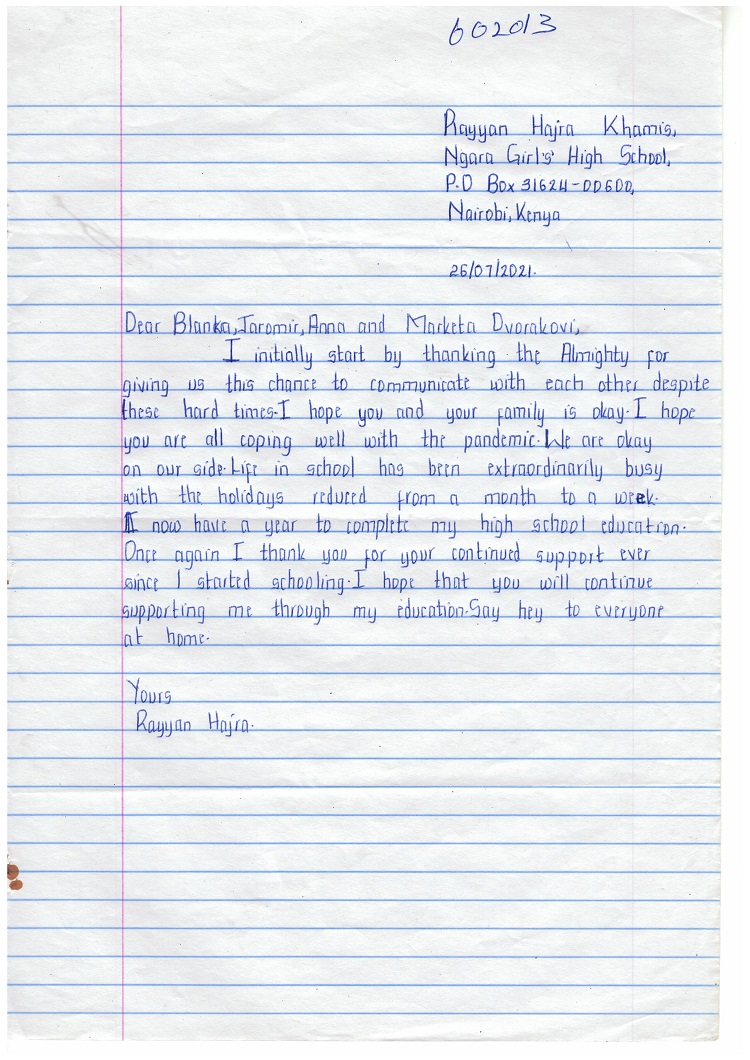 602013
Rayyan Hajra Khamis,
Ngara Girl's' High School,
P.O Box 31624-00600,
Nairobi, Kenya
26/07/2021.
Dear Blanka, Jaromir, Anna and Marketa Dvorakovi,
I initially start by thanking the Almighty for
giving us this chance to communicate with each other despite
these hard times. I hope you and your family is okay. I hope
you are all coping well with the pandemic. We are okay
on our side. Life in school has been extraordinarily busy
with the holidays reduced from a month to a week.
I now have a year to complete my high school education.
Once again I thank you for your continued support ever
since I started schooling. I hope that you will continue
supporting me through my education. Say hey to everyone
at home.
Yours
Rayyan Hajra.